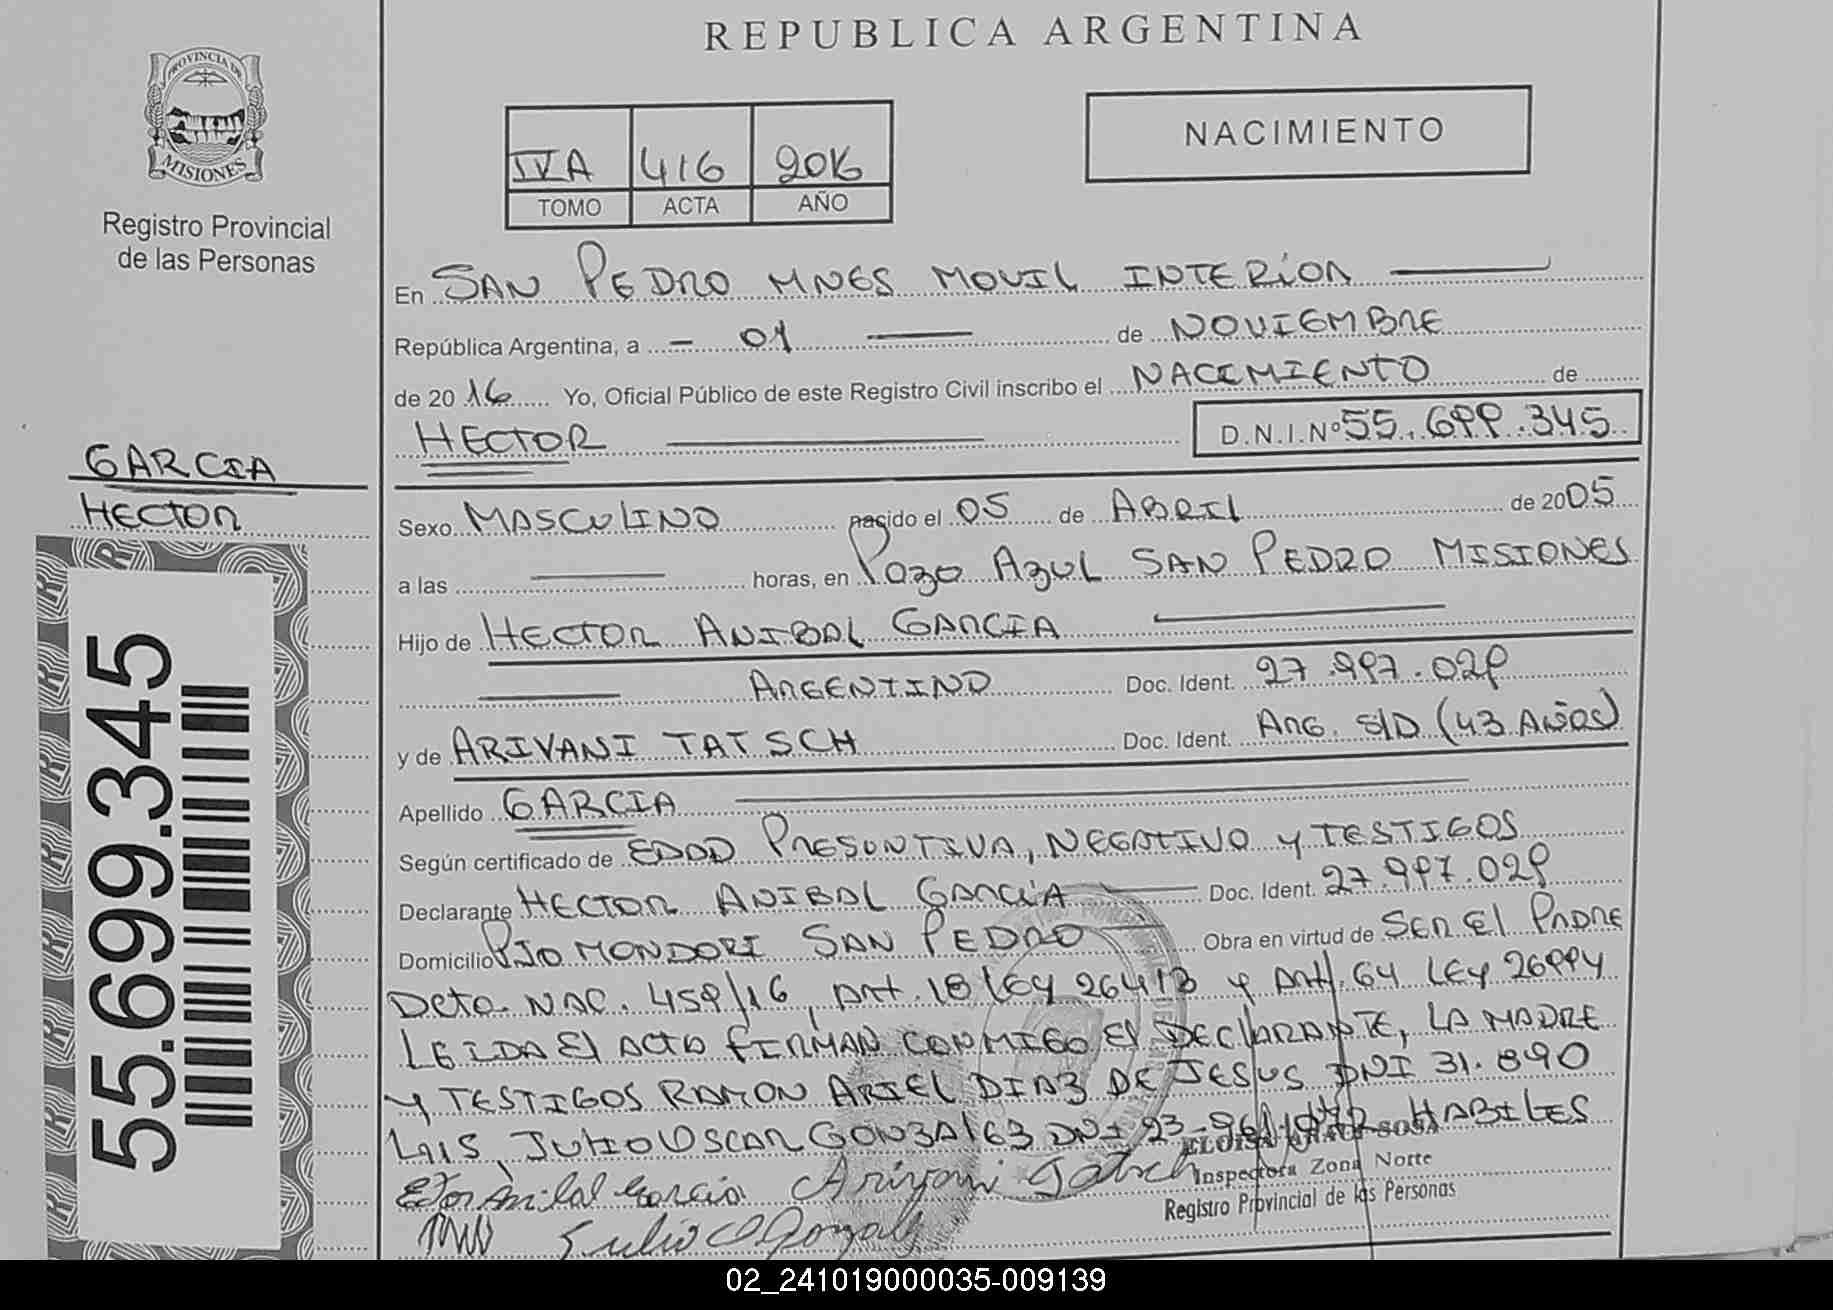 REPUBLICA ARGENTINA
PROVINCIA DE
MISIONES
Registro Provincial
de las Personas
NACIMIENTO
IV A 416 2016
TOMO ACTA AÑO
En SAN PEDRO MNES MOVIL INTERIOR
República Argentina, a - 01 de NOVIEMBRE
de 2016 Yo, Oficial Público de este Registro Civil inscribo el NACIMIENTO de
HECTOR D.N.I.Nº 55.699.345
GARCIA
HECTOR
Sexo MASCULINO nacido el 05 de ABRIL de 2005
a las horas, en Pozo AzUL SAN PEDRO MISIONES
Hijo de HECTOR ANIBAL GARCIA
ARGENTINO Doc. Ident. 27.997.029
y de ARIVANI TATSCH Doc. Ident. ARG. S/D (43 AÑOS)
Apellido GARCIA
Según certificado de EDAD PRESUNTIVA, NEGATIVO Y TESTIGOS
Declarante HECTOR ANIBAL GARCÍA Doc. Ident. 27.997.029
Domicilio PJO MONDORI SAN PEDRO Obra en virtud de SER El PADRE
Dcto. NAC. 459/16, Art. 18 LEY 26413 y Art. 64 LEY 26994
LEIDA El ACTA FIRMAN CONMIGO El DEClARANTE, LA MADRE
Y TESTIGOS RAMON ARIEL DIAZ DE JESUS DNI 31.890
JUlIO OSCAR GONZAlEZ DNI HABILES
Anibal Garcia Arivani Tatsch
Inspectora Zona Norte
Registro Provincial de las Personas
Julio O Gonzalez
55.699.345
02_241019000035-009139